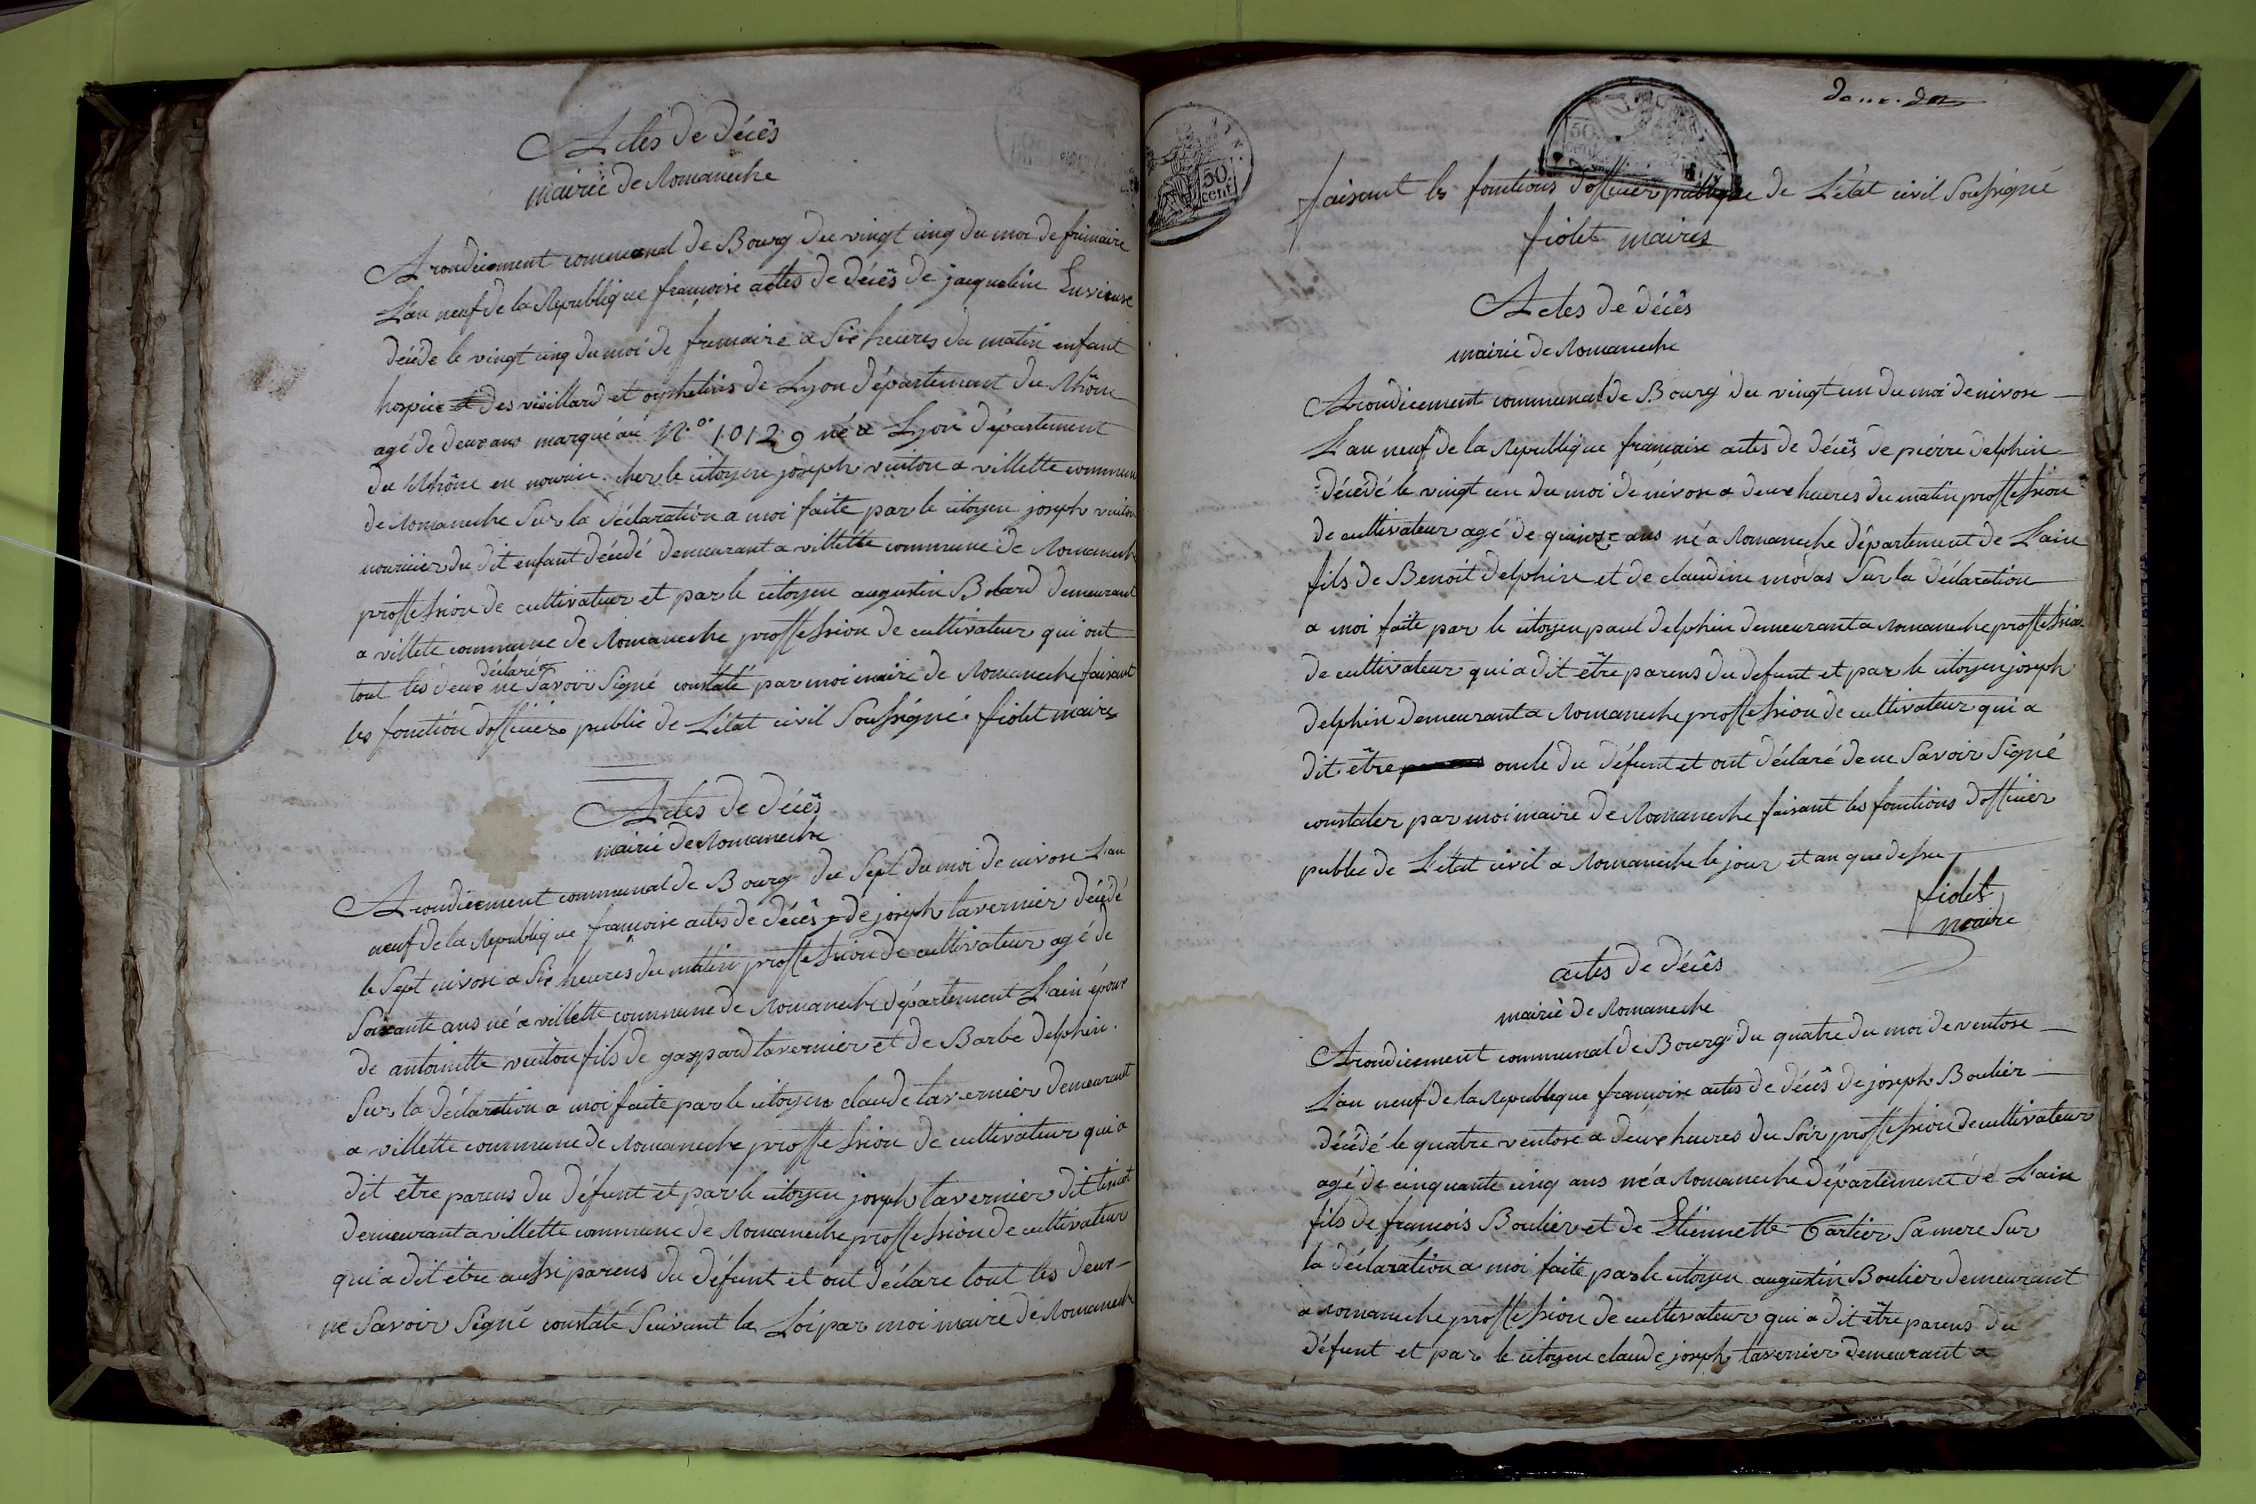 Actes de décés
mairie de Romaneche
Arondicement communal de Bourg du vingt cinq du moi de frimaire
L'an neuf de la Republique françoise actes de décés de jacqueline Envieuse
décéde le vingt cinq du moi de frimaire a Six heures du matin enfant
hospice des vieillard et orphelins de Lyon département du Rhône
agé de deux ans marqué au N.o 10129 né a Lyon département
du Rhône en nourice chez le citoyen joseph vuiton a villette commune
de Romaneche Sur la déclaration a moi faite par le citoyen joseph vuiton
nouricier du dit enfant décédé demeurant a villette commune de Romaneche
proffession de cultivateur et par le citoyen augustin Bolard demeurant
a villete commune de Romaneche proffession de cultivateur qui ont
déclaré
tout les deux ne Savoir Signé constaté par moi maire de Romaneche faisant
les fonction d'officier public de L'état civil Soussigné. fiolet maire
Actes de décés
mairie de Romaneche
Arondicement communal de Bourg du Sept du moi de nivose L'an
neuf de la Republique françoise actes de décés de joseph tavernier décédé
le Sept nivose a Six heures du matin proffession de cultivateur agé de
Soixante ans né a villette commune de Romaneche département L'ain époux
de antoinette vuiton fils de gaspard tavernier et de Barbe delphin.
Sur la déclaration a moi faite par le citoyen claude tavernier demeurant
a villette commune de Romaneche proffession de cultivateur qui a
dit être parens du défunt et par le citoyen joseph tavernier dit
demeurant a villette commune de Romaneche proffession de cultivateur
qui a dit être aussi parens du défunt et ont déclare tout les deux
ne Savoir Signé constaté Suivant la Loi par moi maire de Romaneche
50 cent.
faisant les fonctions d'officier publique de L'état civil Soussigné
fiolet maire
Actes de décés
mairie de Romaneche
Arondicement communal de Bourg du vingt un du moi de nivose
L'an neuf de la Republique françoise actes de décés de pierre delphin
décédé le vingt un du moi de nivose a deux heures du matin proffession
de cultivateur agé de quinze ans né a Romaneche département de L'ain
fils de Benoit delphin et de claudine modas Sur la déclaration
a moi faite par le citoyen paul delphin demeurant a Romaneche proffession
de cultivateur qui a dit être parens du defunt et par le citoyen joseph
delphin demeurant a Romaneche proffession de cultivateur qui a
dit être oncle du défunt et ont déclaré de ne Savoir Signé
constater par moi maire de Romaneche faisant les fonctions d'officier
public de L'état civil a Romaneche le jour et an que dessu
fiolet
maire
actes de décés
mairie de Romaneche
Arondicement communal de Bourg du quatre du moi de ventose
L'an neuf de la Republique françoise actes de décés de joseph Boulier
décédé le quatre ventose a deux heures du Soir proffession de cultivateur
agé de cinquante cinq ans né a Romaneche département de L'ain
fils de francois Boulier et de Etiennette Cartier Sa mere Sur
la déclaration a moi faite par le citoyen augustin Boulier demeurant
a romaneche proffession de cultivateur qui a dit être parens du
défunt et par le citoyen claude joseph tavernier demeurant a